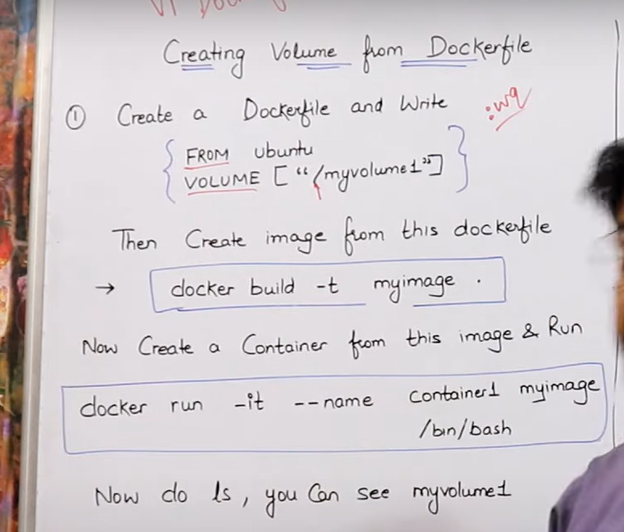 Creating Volume from Dockerfile
① Create a Dockerfile and Write
:wq
FROM ubuntu
VOLUME ["/myvolume1"]
Then Create image from this dockerfile
→ docker build -t myimage .
Now Create a Container from this image & Run
docker run -it --name container1 myimage
/bin/bash
Now do ls, you Can see myvolume1